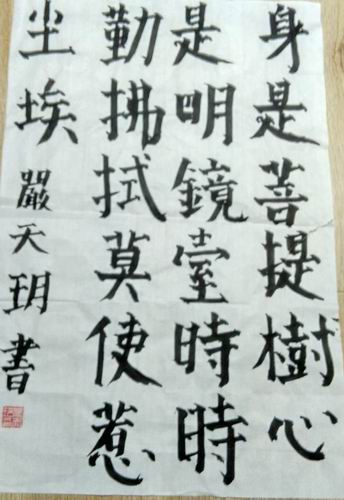 身是菩提樹心
是明鏡臺時時
勤拂拭莫使惹
尘埃
嚴天玥書